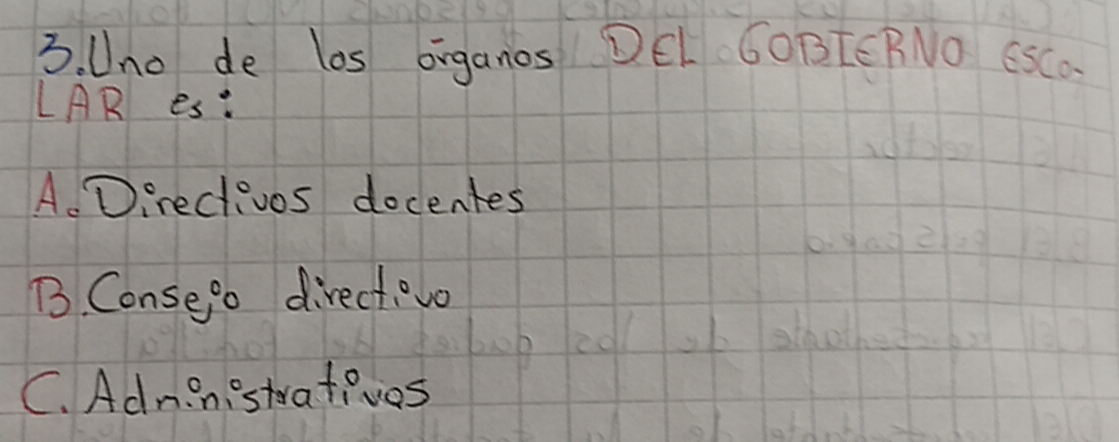 3. Uno de los órganos DEL GOBIERNO ESCO-
LAR es:
A. Directivos docentes
B. Consejo directivo
C. Administrativos